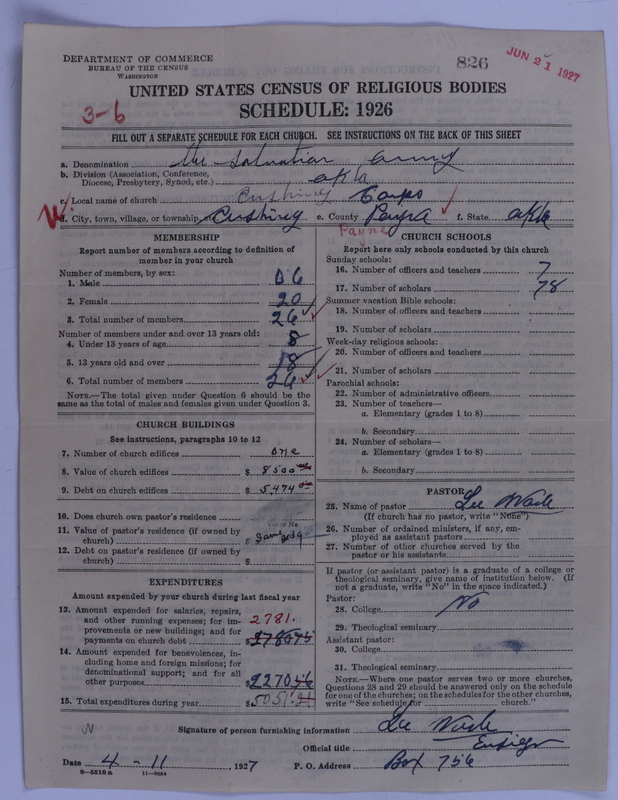 DEPARTMENT OF COMMERCE
BUREAU OF THE CENSUS
WASHINGTON
826
JUN 21 1927
UNITED STATES CENSUS OF RELIGIOUS BODIES
SCHEDULE: 1926
3-6
FILL OUT A SEPARATE SCHEDULE FOR EACH CHURCH. SEE INSTRUCTIONS ON THE BACK OF THIS SHEET
a. Denomination the Salvation army
b. Division (Association, Conference,
Diocese, Presbytery, Synod, etc.) okla
c. Local name of church Cushing Corps
d. City, town, village, or township Cushing e. County Payna f. State okla
Payne
MEMBERSHIP
Report number of members according to definition of
member in your church
Number of members, by sex:
1. Male 06
2. Female 20
3. Total number of members 26
Number of members under and over 13 years old:
4. Under 13 years of age 8
5. 13 years old and over 18
6. Total number of members 26
NOTE.—The total given under Question 6 should be the
same as the total of males and females given under Question 3.
CHURCH BUILDINGS
See instructions, paragraphs 10 to 12
7. Number of church edifices one
8. Value of church edifices $ 8500
9. Debt on church edifices $ 5,474
10. Does church own pastor's residence No
11. Value of pastor's residence (if owned by
church) $
12. Debt on pastor's residence (if owned by
church) $
EXPENDITURES
Amount expended by your church during last fiscal year
13. Amount expended for salaries, repairs,
and other running expenses; for im-
provements or new buildings; and for
payments on church debt 2781. $ 2780.75
14. Amount expended for benevolences, in-
cluding home and foreign missions; for
denominational support; and for all
other purposes $ 2270.46
15. Total expenditures during year $ 5051.21
CHURCH SCHOOLS
Report here only schools conducted by this church
Sunday schools:
16. Number of officers and teachers 7
17. Number of scholars 78
Summer vacation Bible schools:
18. Number of officers and teachers
19. Number of scholars
Week-day religious schools:
20. Number of officers and teachers
21. Number of scholars
Parochial schools:
22. Number of administrative officers
23. Number of teachers—
a. Elementary (grades 1 to 8)
b. Secondary
24. Number of scholars—
a. Elementary (grades 1 to 8)
b. Secondary
PASTOR
25. Name of pastor Lee Wade
(If church has no pastor, write "None")
26. Number of ordained ministers, if any, em-
ployed as assistant pastors
27. Number of other churches served by the
pastor or his assistants
If pastor (or assistant pastor) is a graduate of a college or
theological seminary, give name of institution below. (If
not a graduate, write "No" in the space indicated.)
Pastor:
28. College No
29. Theological seminary
Assistant pastor:
30. College
31. Theological seminary
NOTE.—Where one pastor serves two or more churches,
Questions 28 and 29 should be answered only on the schedule
for one of the churches; on the schedules for the other churches,
write "See schedule for church."
Signature of person furnishing information Lee Wade
Official title Ensign
Date 4-11, 1927 P. O. Address Box 756
8—5518 a 11—9054